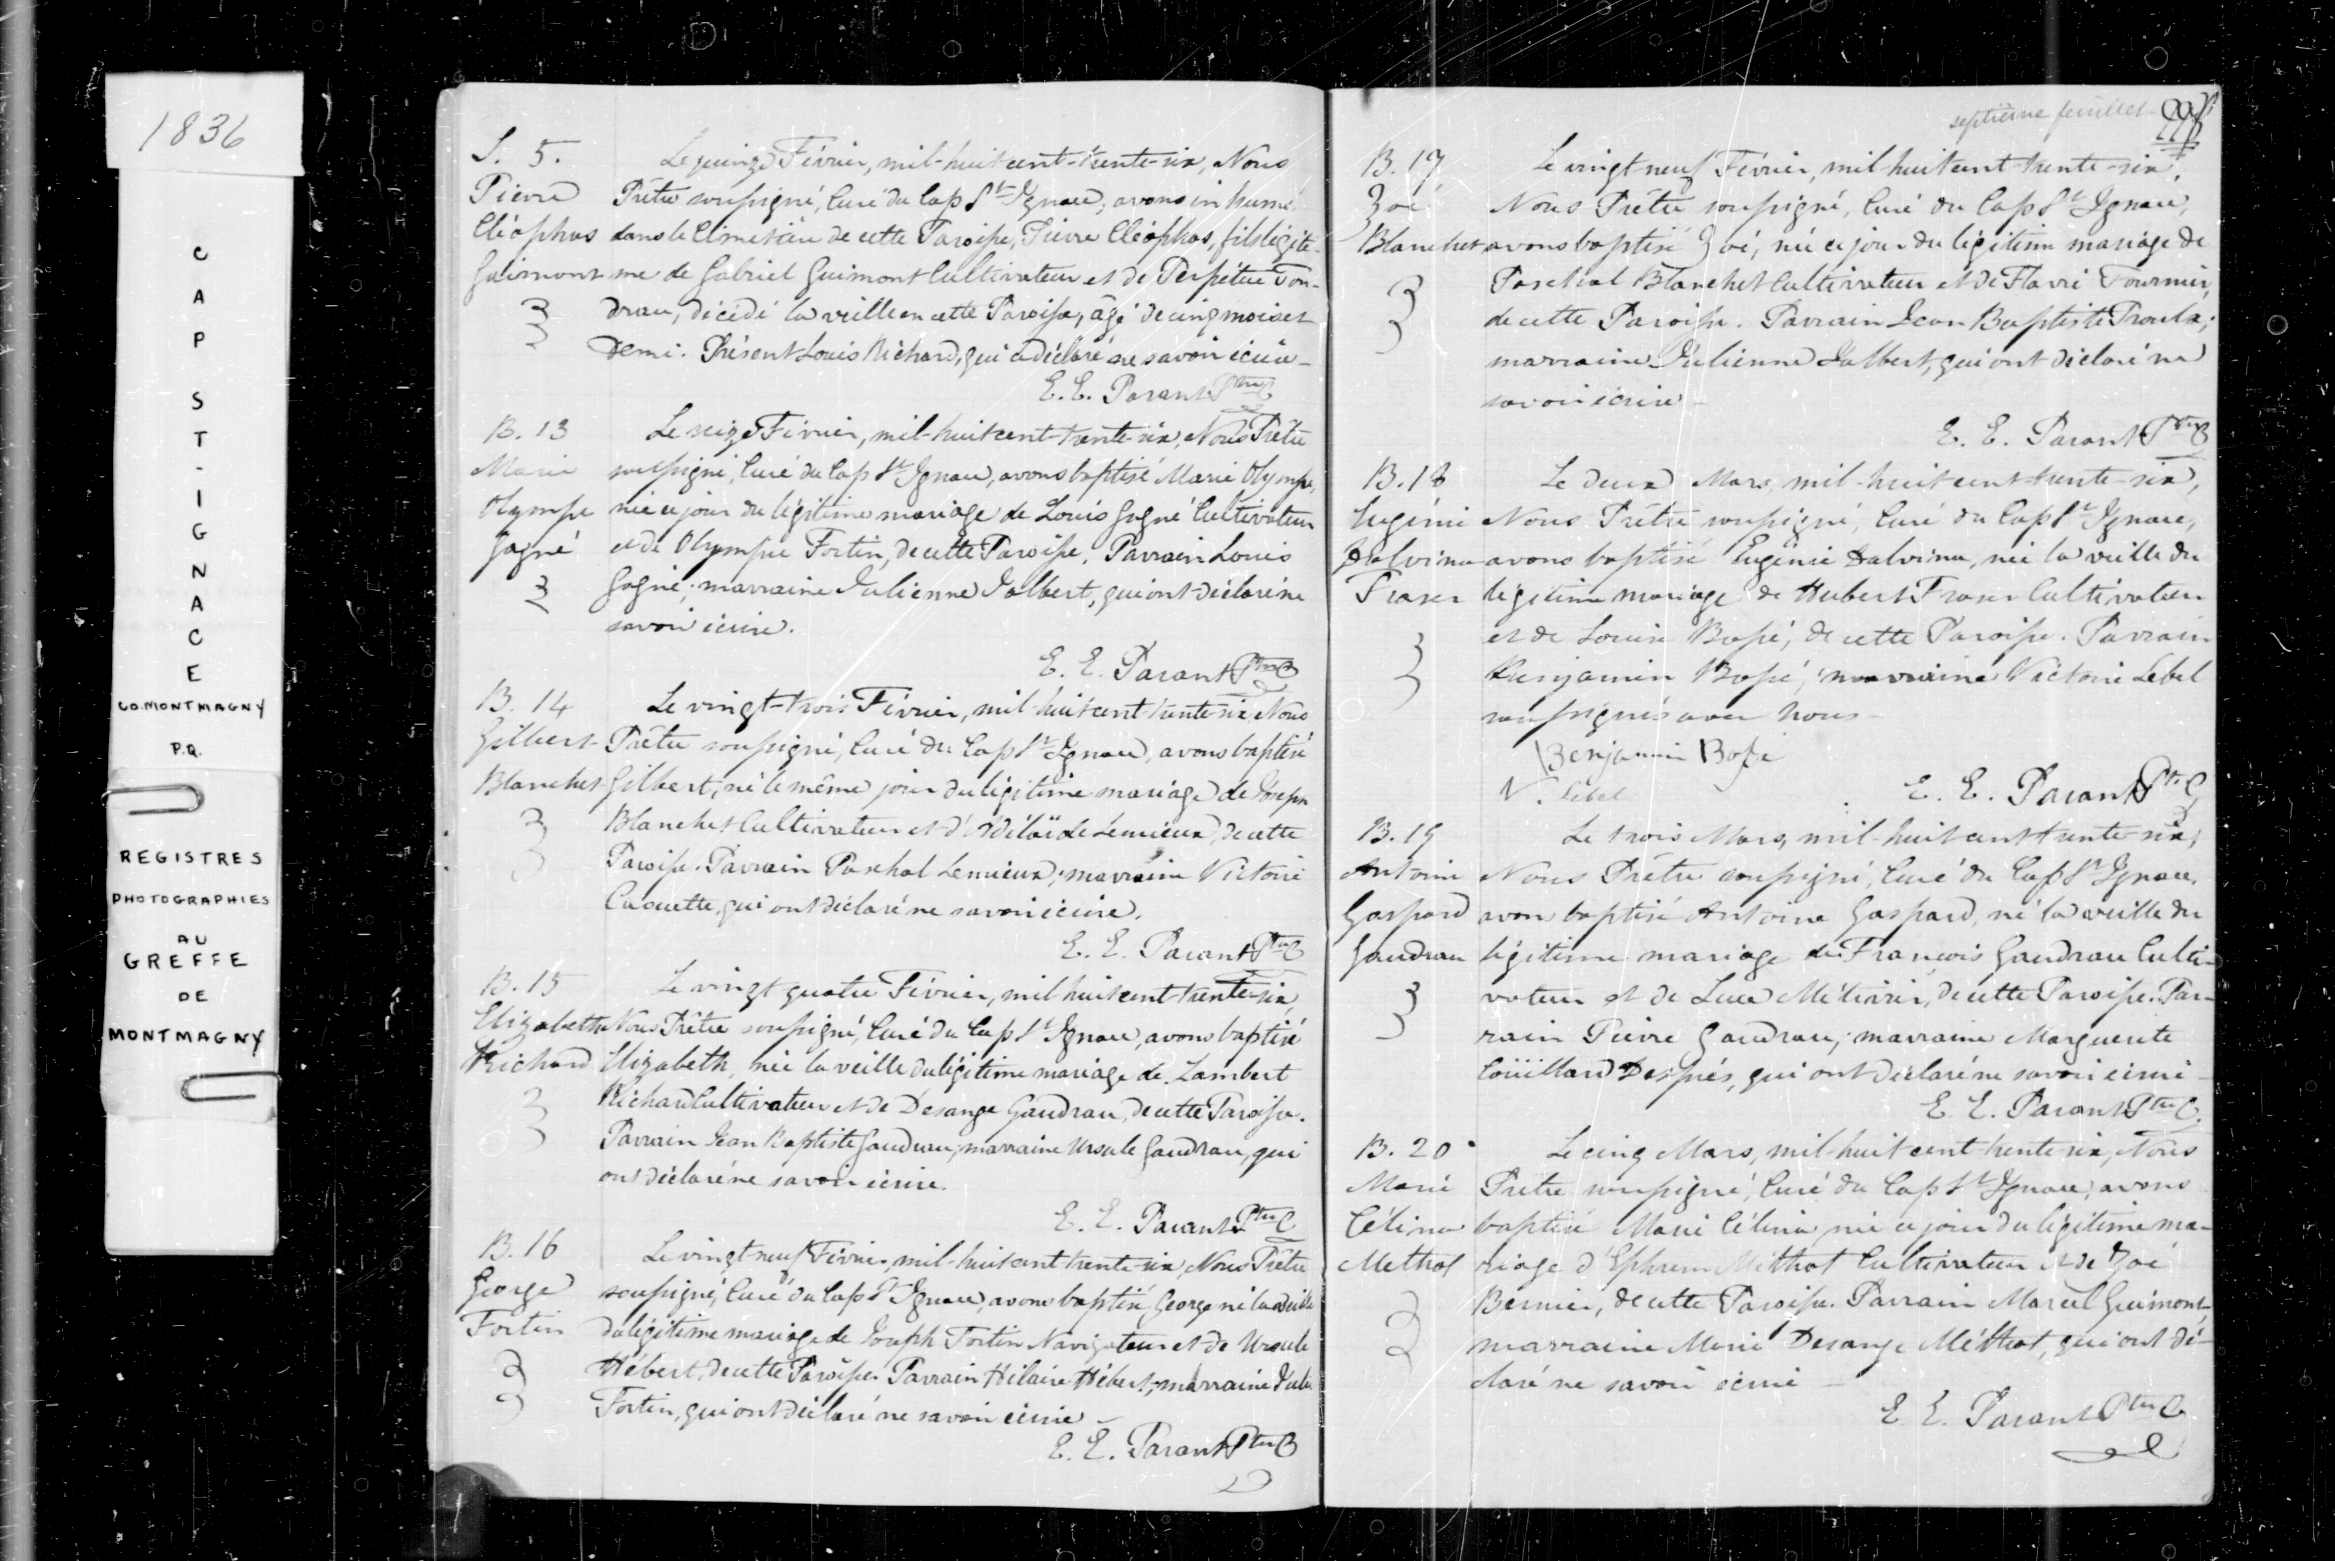 1836
CAP ST-IGNACE
CO. MONTMAGNY
P.Q.
REGISTRES
PHOTOGRAPHIES
AU
GREFFE
DE
MONTMAGNY
S. 5.
Pierre
Cléophas
Guimont
Le quinze Février, mil-huit-cent-trente-six, Nous
Prêtre soussigné, Curé du Cap St Ignace, avons inhumé
dans le Cimetière de cette Paroisse, Pierre Cléophas, fils légiti-
me de Gabriel Guimont Cultivateur et de Perpétue
drau, décédé la veille en cette Paroisse, âgé de cinq mois et
demi. Présent Louis Richard, qui a déclaré ne savoir écrire_
E. E. Parant Ptre C
B. 13
Marie
Olympe
Gagné
Le seize Février, mil-huit-cent-trente-six, Nous Prêtre
soussigné, Curé du Cap St Ignace, avons baptisé Marie Olympe,
née ce jour du légitime mariage de Louis Gagné Cultivateur
et de Olympe Fortin, de cette Paroisse. Parrain Louis
Gagné; marraine Julienne Jalbert, qui ont déclaré ne
savoir écrire.
E. E. Parant Ptre C
B. 14
Gilbert
Blanchet
Le vingt-trois Février, mil-huit-cent-trente-six, Nous
Prêtre soussigné, Curé du Cap St Ignace, avons baptisé
Gilbert, né le même jour du légitime mariage de Joseph
Blanchet Cultivateur et d'Adélaïde Lemieux, de cette
Paroisse. Parrain Paschal Lemieux; marraine Victoire
Caouette, qui ont déclaré ne savoir écrire.
E. E. Parant Ptre C
B. 15
Elizabeth
Richard
Le vingt quatre Février, mil huit cent-trente-six,
Nous Prêtre soussigné, Curé du Cap St Ignace, avons baptisé
Elizabeth, née la veille du légitime mariage de Lambert
Richard Cultivateur et de Desange Gaudrau, de cette Paroisse.
Parrain Jean Baptiste Gaudrau; marraine Ursule Gaudrau, qui
ont déclaré ne savoir écrire.
E. E. Parant Ptre C
B. 16
George
Fortin
Le vingt neuf Février, mil-huit cent trente-six, Nous Prêtre
soussigné, Curé du Cap St Ignace, avons baptisé George né la veille
du légitime mariage de Joseph Fortin Navigateur et de Ursule
Hébert, de cette Paroisse. Parrain Hilaire Hébert; marraine
Fortin, qui ont déclaré ne savoir écrire_
E. E. Parant Ptre C
septième feuillet
B. 17
Zoé
Blanchet
Le vingt neuf Février, mil-huit cent-trente-six,
Nous Prêtre soussigné, Curé du Cap St Ignace,
avons baptisé Zoé, née ce jour du légitime mariage de
Paschal Blanchet Cultivateur et de Flavie Fournier,
de cette Paroisse. Parrain Jean Baptiste Proulx;
marraine Julienne Jalbert, qui ont déclaré ne
savoir écrire_
E. E. Parant Ptre C
B. 18
Eugénie
Dalvina
Fraser
Le deux Mars, mil-huit cent-trente-six,
Nous Prêtre soussigné, Curé du Cap St Ignace,
avons baptisé Eugénie Dalvina, née la veille du
légitime mariage de Hubert Fraser Cultivateur
et de Louise Bossé, de cette Paroisse. Parrain
Benjamin Bossé; marraine Victoire Lebel
soussignés avec nous_
Benjamin Bossé
V. Lebel
E. E. Parant Ptre C
B. 19
Antoine
Gaspard
Gaudrau
Le trois Mars, mil-huit cent trente-six,
Nous Prêtre soussigné, Curé du Cap St Ignace,
avons baptisé Antoine Gaspard, né la veille du
légitime mariage de François Gaudrau Culti-
vateur et de Luce Métivier, de cette Paroisse. Par-
rain Pierre Gaudrau; marraine Marguerite
Couillard Després, qui ont déclaré ne savoir écrire_
E. E. Parant Ptre C.
B. 20
Marie
Célina
Methot
Le cinq Mars, mil-huit cent-trente-six, Nous
Prêtre soussigné, Curé du Cap St Ignace, avons
baptisé Marie Célina, née ce jour du légitime ma-
riage d'Ephrem Méthot Cultivateur et de Zoé
Bernier, de cette Paroisse. Parrain Marcel Guimont,
marraine Marie Desange Méthot, qui ont dé-
claré ne savoir écrire_
E. E. Parant Ptre C